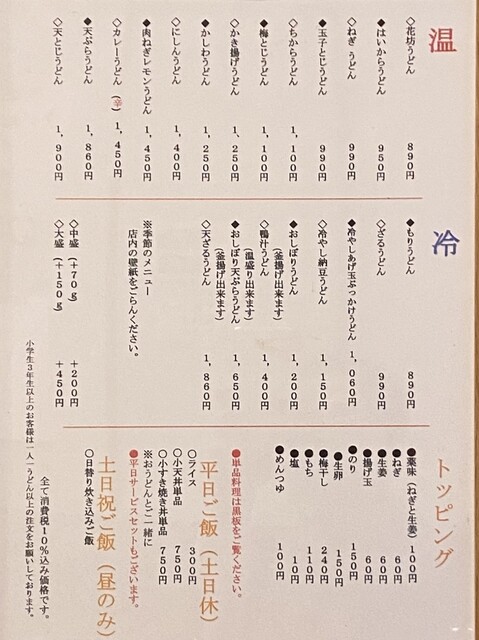 温
◇花坊うどん 890円
◆はいからうどん 950円
◇ねぎ うどん 990円
◆玉子とじうどん 990円
◇ちからうどん 1,100円
◆梅とじうどん 1,100円
◇かき揚げうどん 1,250円
◆かしわうどん 1,250円
◇にしんうどん 1,400円
◆肉ねぎレモンうどん 1,450円
◇カレーうどん (辛) 1,450円
◆天ぷらうどん 1,860円
◇天とじうどん 1,900円
冷
◆もりうどん 890円
◇ざるうどん 990円
◆冷やしあげ玉ぶっかけうどん 1,060円
◇冷やし納豆うどん 1,150円
◆おしぼりうどん 1,200円
(釜揚げ出来ます)
◇鴨汁うどん 1,400円
(温盛り出来ます)
◆おしぼり天ぷらうどん 1,650円
(釜揚げ出来ます)
◇天ざるうどん 1,860円
※季節のメニュー
店内の壁紙をごらんください。
◇中盛 (+70g) +200円
◇大盛 (+150g) +450円
トッピング
●薬味 (ねぎと生姜) 100円
●ねぎ 60円
●生姜 60円
●揚げ玉 60円
●のり 150円
●生卵 150円
●梅干し 240円
●もち 110円
●塩 100円
●めんつゆ 100円
●単品料理は黒板をご覧ください。
平日ご飯 (土日休)
○ライス 300円
○小天丼単品 750円
○小すき焼き丼単品 750円
※おうどんとご一緒に
●平日サービスセットもございます。
土日祝ご飯 (昼のみ)
○日替り炊き込みご飯
全て消費税10%込み価格です。
小学生3年生以上のお客様は一人一うどん以上の注文をお願いしております。